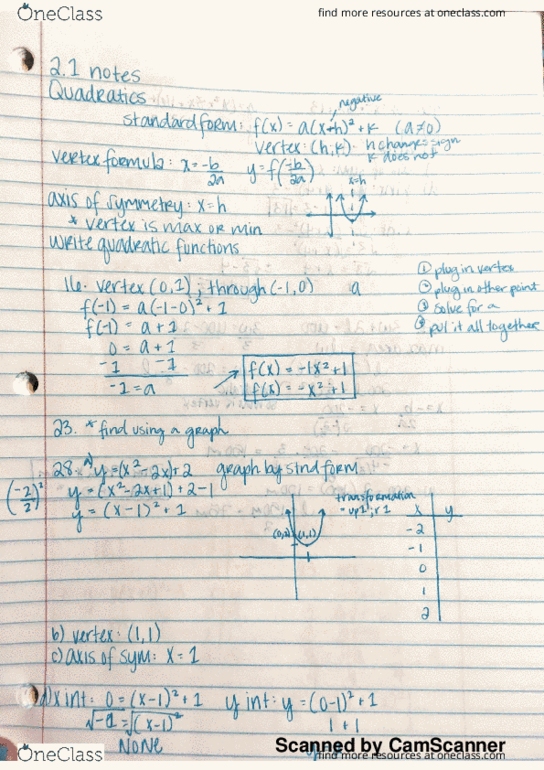 OneClass
find more resources at oneclass.com
2.1 notes
Quadratics
negative
standard form: f(x) = a(x-h)² + k (a≠0)
vertex: (h,k). h changes sign
k does not
vertex formula: x = -b/2a y = f(-b/2a)
x=h
axis of symmetry: x=h
* vertex is max or min
write quadratic functions
16. vertex (0,1); through (-1,0) a
① plug in vertex
② plug in other point
③ solve for a
④ put it all together
f(-1) = a(-1-0)² + 1
f(-1) = a + 1
0 = a + 1
-1 -1
-1 = a
f(x) = -1x² + 1
f(x) = -x² + 1
23. * find using a graph
28. a) y = (x² - 2x) + 2 graph by stnd form
(-2/2)² y = (x² - 2x + 1) + 2 - 1
y = (x-1)² + 1
transformation
- up 1, r 1
x y
-2
-1
0
1
2
(0,2) (1,1)
b) vertex: (1,1)
c) axis of sym: x = 1
d) x int: 0 = (x-1)² + 1 y int: y = (0-1)² + 1
√-1 = √(x-1)² 1 + 1
NONE
Scanned by CamScanner
OneClass
find more resources at oneclass.com